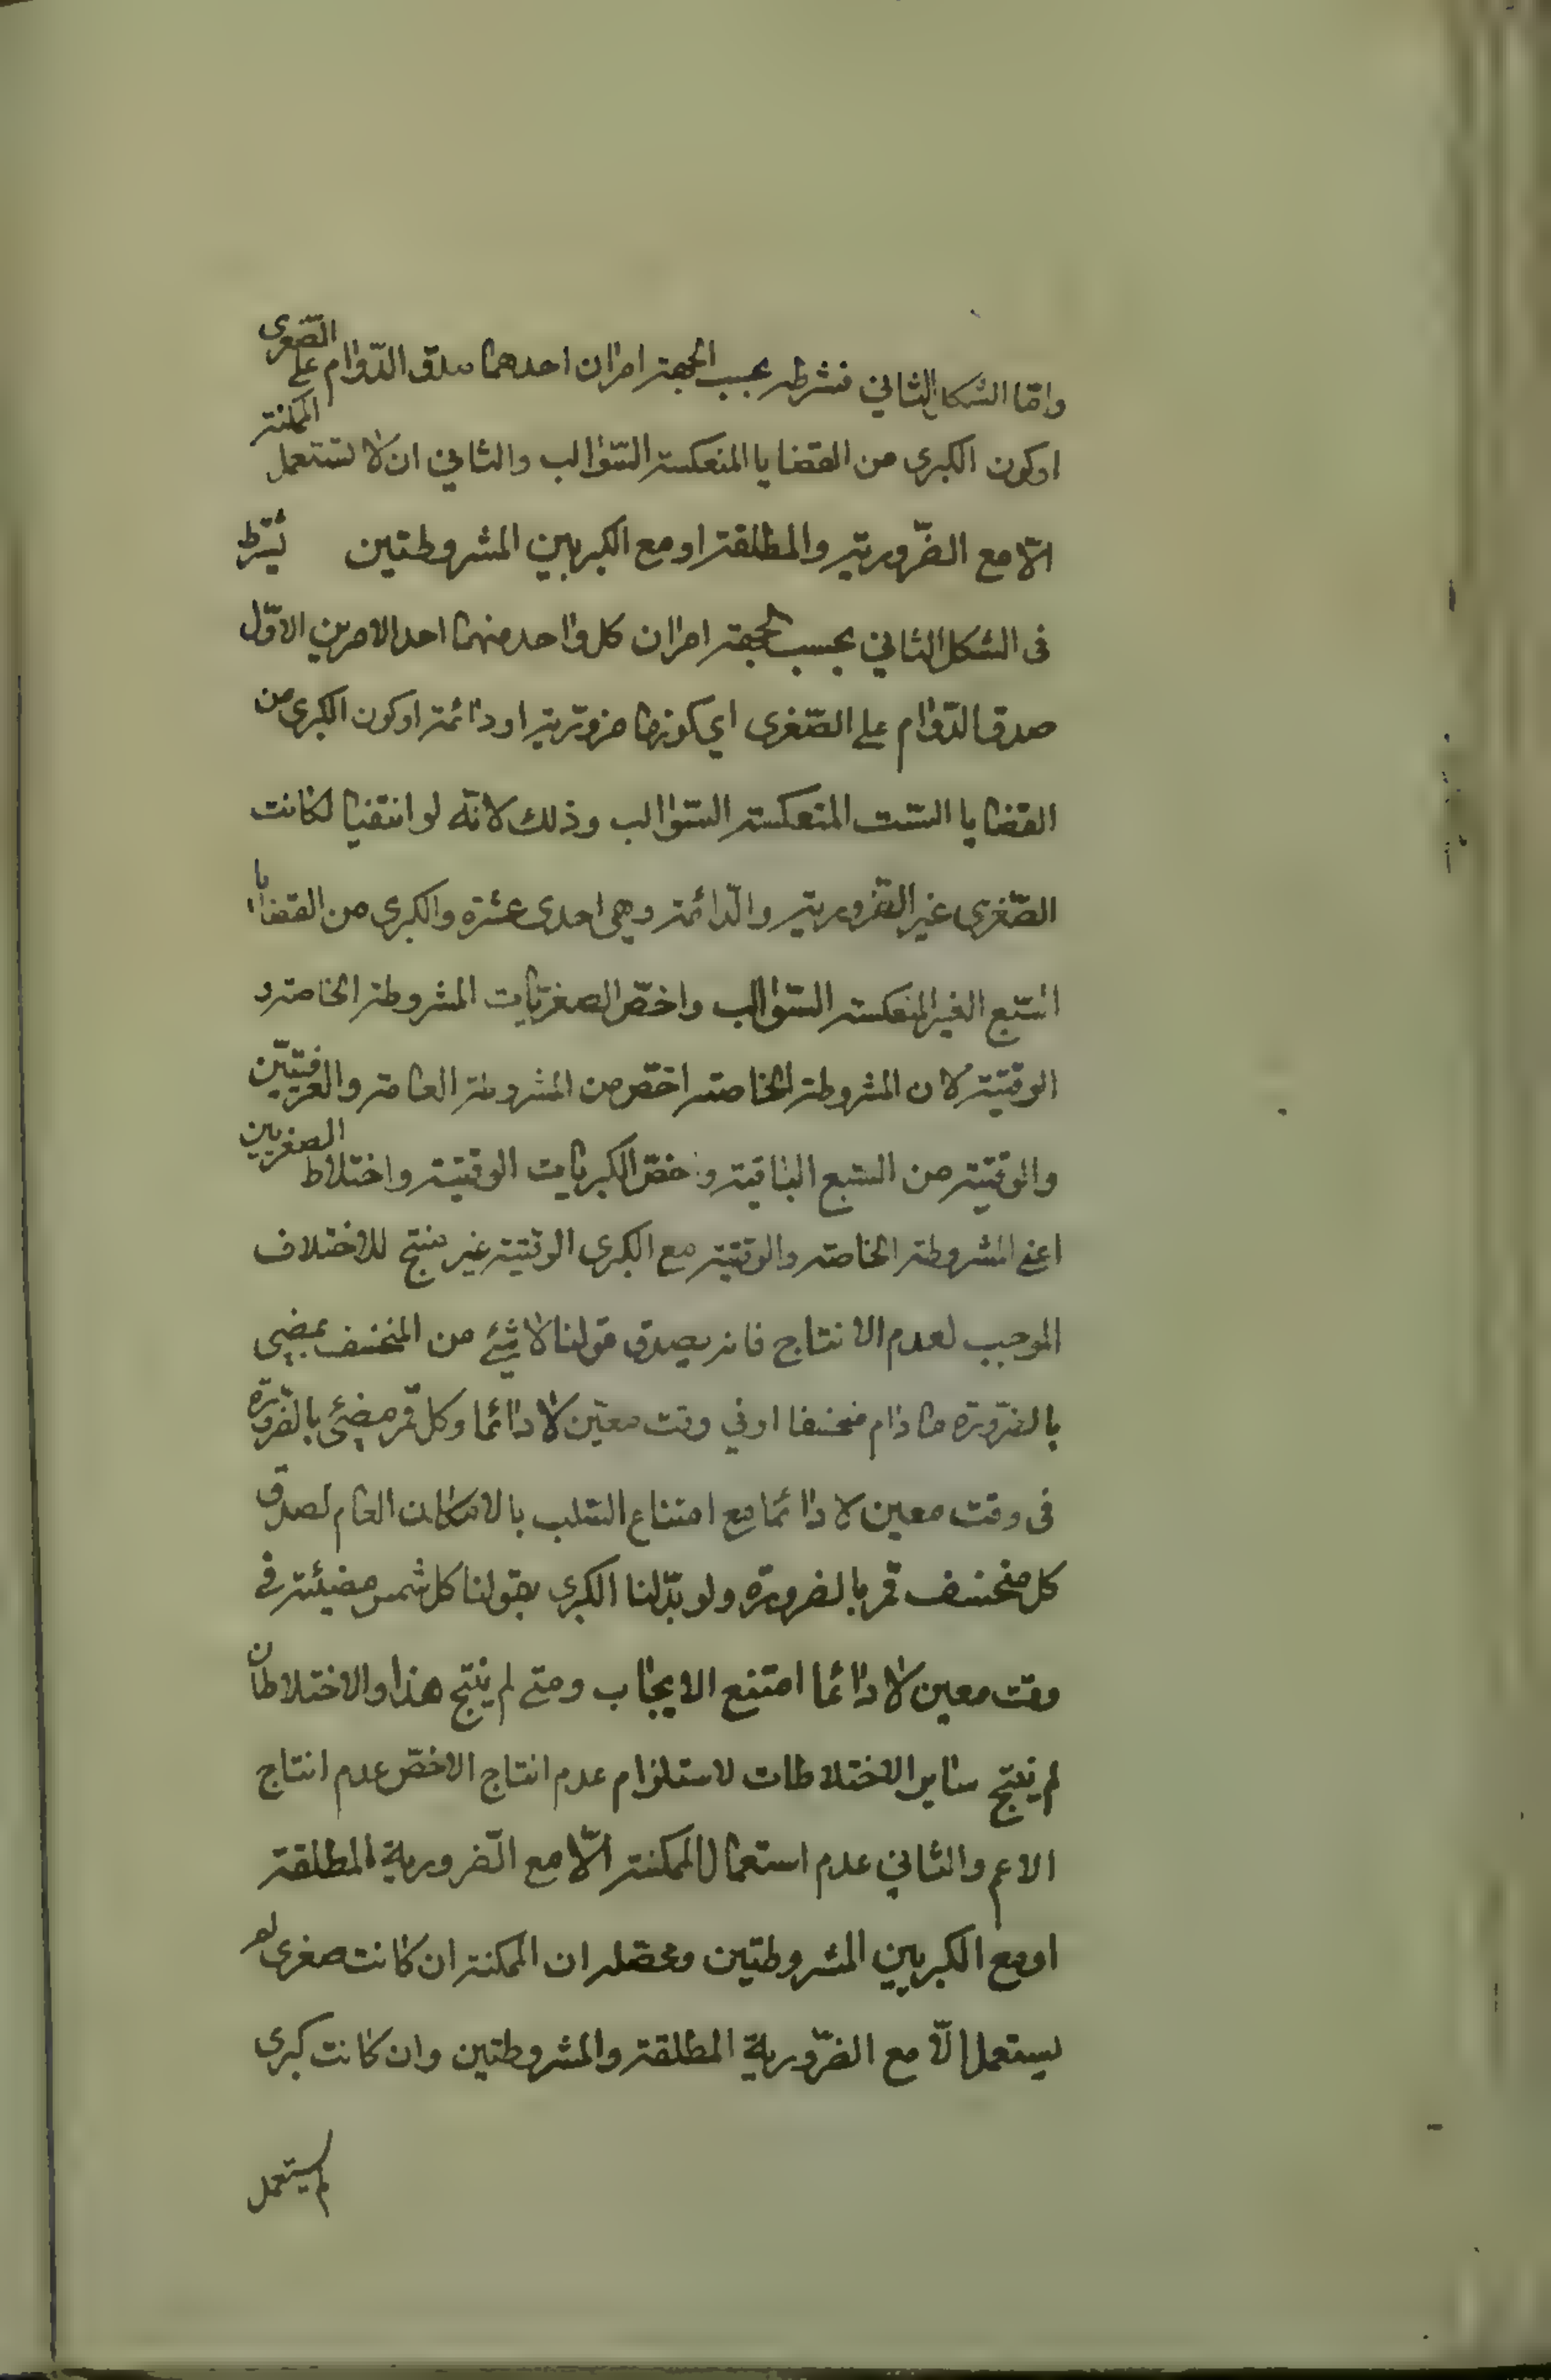 وامّا الشكل الثاني فشرطه بحسب الجهة امران احدهما صدق الدّوام على الصّغرى
او كون الكبرى من القضايا المنعكسة السّوالب والثاني ان لا تستعمل الممكنة
الّا مع الضّروريّة والمطلقة او مع الكبريين المشروطتين يشترط
فى الشكل الثاني بحسب الجهة امران كل واحد منهما احد الامرين الاوّل
صدق الدّوام على الصّغرى اي كونها ضروريّة او دائمة او كون الكبرى من
القضايا السّت المنعكسة السّوالب وذلك لانّه لو انتفيا لكانت
الصّغرى غير الضّروريّة والدّائمة وهي احدى عشرة والكبرى من القضايا
السّبع الغير المنعكسة السّوالب واخصّ الصغريات المشروطة الخاصة و
الوقتيّة لان المشروطة الخاصة اخصّ من المشروطة العامة والعرفيّتين
والوقتيّة من السّبع الباقية واخصّ الكبريات الوقتيّة واختلاط الصغريين
اعني المشروطة الخاصة والوقتيّة مع الكبرى الوقتيّة غير منتج للاختلاف
الموجب لعدم الانتاج فانه يصدق قولنا لا شئ من المنخسف بمضيى
بالضّرورة ما دام منخسفا او في وقت معيّن لا دائما وكل قمر مضيئ بالضّرورة
فى وقت معين لا دائما مع امتناع السّلب بالامكان العام لصدق
كل منخسف قمر بالضرورة ولو بدّلنا الكبرى بقولنا كل شمس مضيئة في
وقت معين لا دائما امتنع الايجاب ومتى لم ينتج هذا والاختلاطان
لم ينتج ساير الاختلاطات لاستلزام عدم انتاج الاخصّ عدم انتاج
الاعم والثاني عدم استعمال الممكنة الّا مع الضّرورية المطلقة
او مع الكبريين المشروطتين ومحصّله ان الممكنة ان كانت صغرى لم
يستعمل الّا مع الضّرورية المطلقة والمشروطتين وان كانت كبرى
لم يستعمل